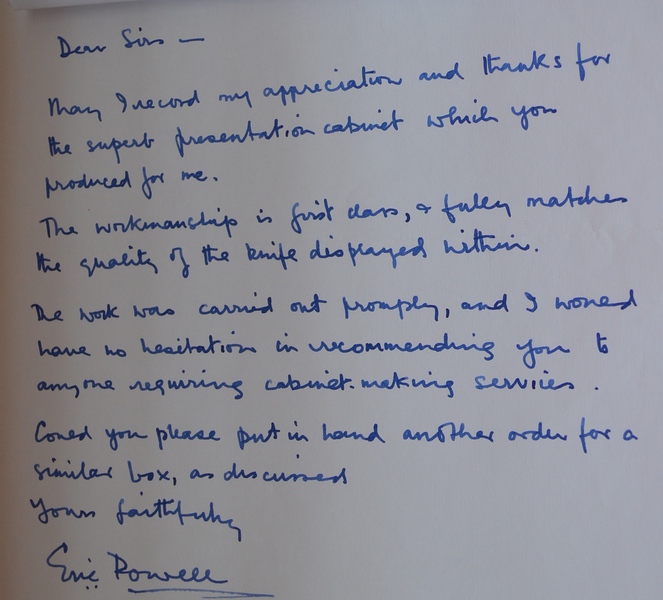 Dear Sirs —
May I record my appreciation and thanks for
the superb presentation cabinet which you
produced for me.
The workmanship is first class, & fully matches
the quality of the knife displayed within.
The work was carried out promply, and I would
have no hesitation in recommending you to
anyone requiring cabinet-making services.
Could you please put in hand another order for a
similar box, as discussed
Yours faithfully
Eric Powell